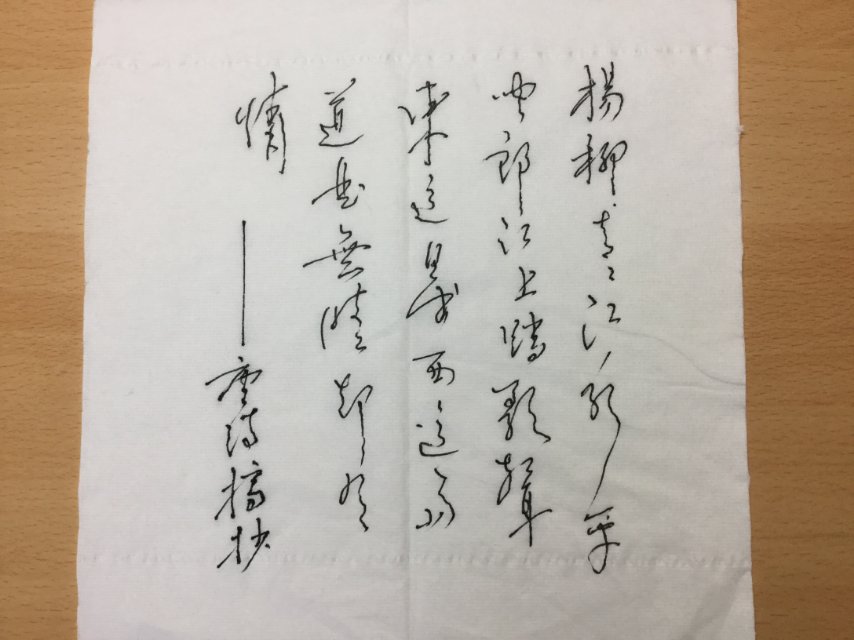 楊柳青青江水平
聞郎江上踏歌聲
東邊日出西邊雨
道是無晴却有
情——唐詩摘抄